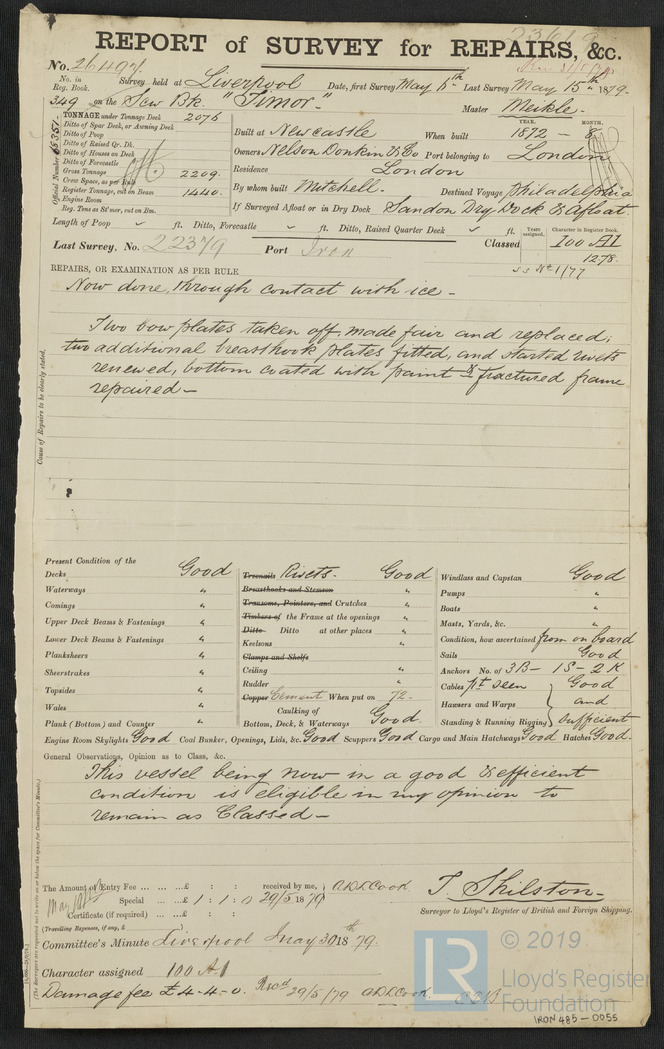 REPORT of SURVEY for REPAIRS, &c.
No. 26494
No. in Reg. Book. Survey held at Liverpool Date, first Survey May 6th Last Survey May 15th 1879.
349 on the Scw Bk "Timor" Master Meikle.
TONNAGE under Tonnage Deck 2076
Ditto of Spar Deck, or Awning Deck
Ditto of Poop
Ditto of Raised Qr. Dk.
Ditto of Houses on Deck
Ditto of Forecastle
Gross Tonnage 2209.
Crew Space, as per Rule
Register Tonnage, cut on Beam 1440.
Engine Room
Reg. Tons as St'mer, cut on Bm.
Official Number
Built at Newcastle When built YEAR. 1872 - MONTH. 8
Owners Nelson Donkin & Co Port belonging to London
Residence London
By whom built Mitchell. Destined Voyage Philadelphia
If Surveyed Afloat or in Dry Dock Sandon Dry Dock & Afloat.
Length of Poop ft. Ditto, Forecastle ft. Ditto, Raised Quarter Deck ft.
Years assigned. Character in Register Book.
Last Survey, No. 22379 Port Iron Classed 100 A1
12.78.
REPAIRS, OR EXAMINATION AS PER RULE
Now done, through contact with ice -
Two bow plates taken off, made fair and replaced;
two additional breasthook plates fitted, and started rivets
renewed, bottom coated with paint & fractured frame
repaired -
Cause of Repairs to be clearly stated.
Present Condition of the
Decks Good
Waterways "
Comings "
Upper Deck Beams & Fastenings "
Lower Deck Beams & Fastenings "
Planksheers "
Sheerstrakes "
Topsides "
Wales "
Plank (Bottom) and Counter "
Treenails Rivets. Good
Breasthooks and Stemson "
Transoms, Pointers, and Crutches "
Timbers of the Frame at the openings "
Ditto Ditto at other places "
Keelsons "
Clamps and Shelfs
Ceiling "
Rudder "
Copper Cement When put on 72.
Caulking of
Bottom, Deck, & Waterways Good.
Windlass and Capstan Good
Pumps "
Boats "
Masts, Yards, &c. "
Condition, how ascertained from on board
Sails Good
Anchors No. of 3B - 1S - 2K
Cables pt seen Good
Hawsers and Warps and
Standing & Running Rigging Sufficient
Engine Room Skylights Good Coal Bunker, Openings, Lids, &c. Good Scuppers Good Cargo and Main Hatchways Good Hatches Good.
General Observations, Opinion as to Class, &c.
This vessel being now in a good & efficient
condition is eligible in my opinion to
remain as Classed -
The Amount of Entry Fee ... ... ...£ : : received by me,
Special ... ...£ 1 : 1 : 0 29/5 1879
Certificate (if required) ... : :
(Travelling Expenses, if any, £
T. Shilston -
Surveyor to Lloyd's Register of British and Foreign Shipping.
Committee's Minute Liverpool May 30th 1879.
Character assigned 100 A1
Damage fee £4-4-0. Recd 29/5/79
© 2019
LR
Lloyd's Register
Foundation
IRON 485-0055